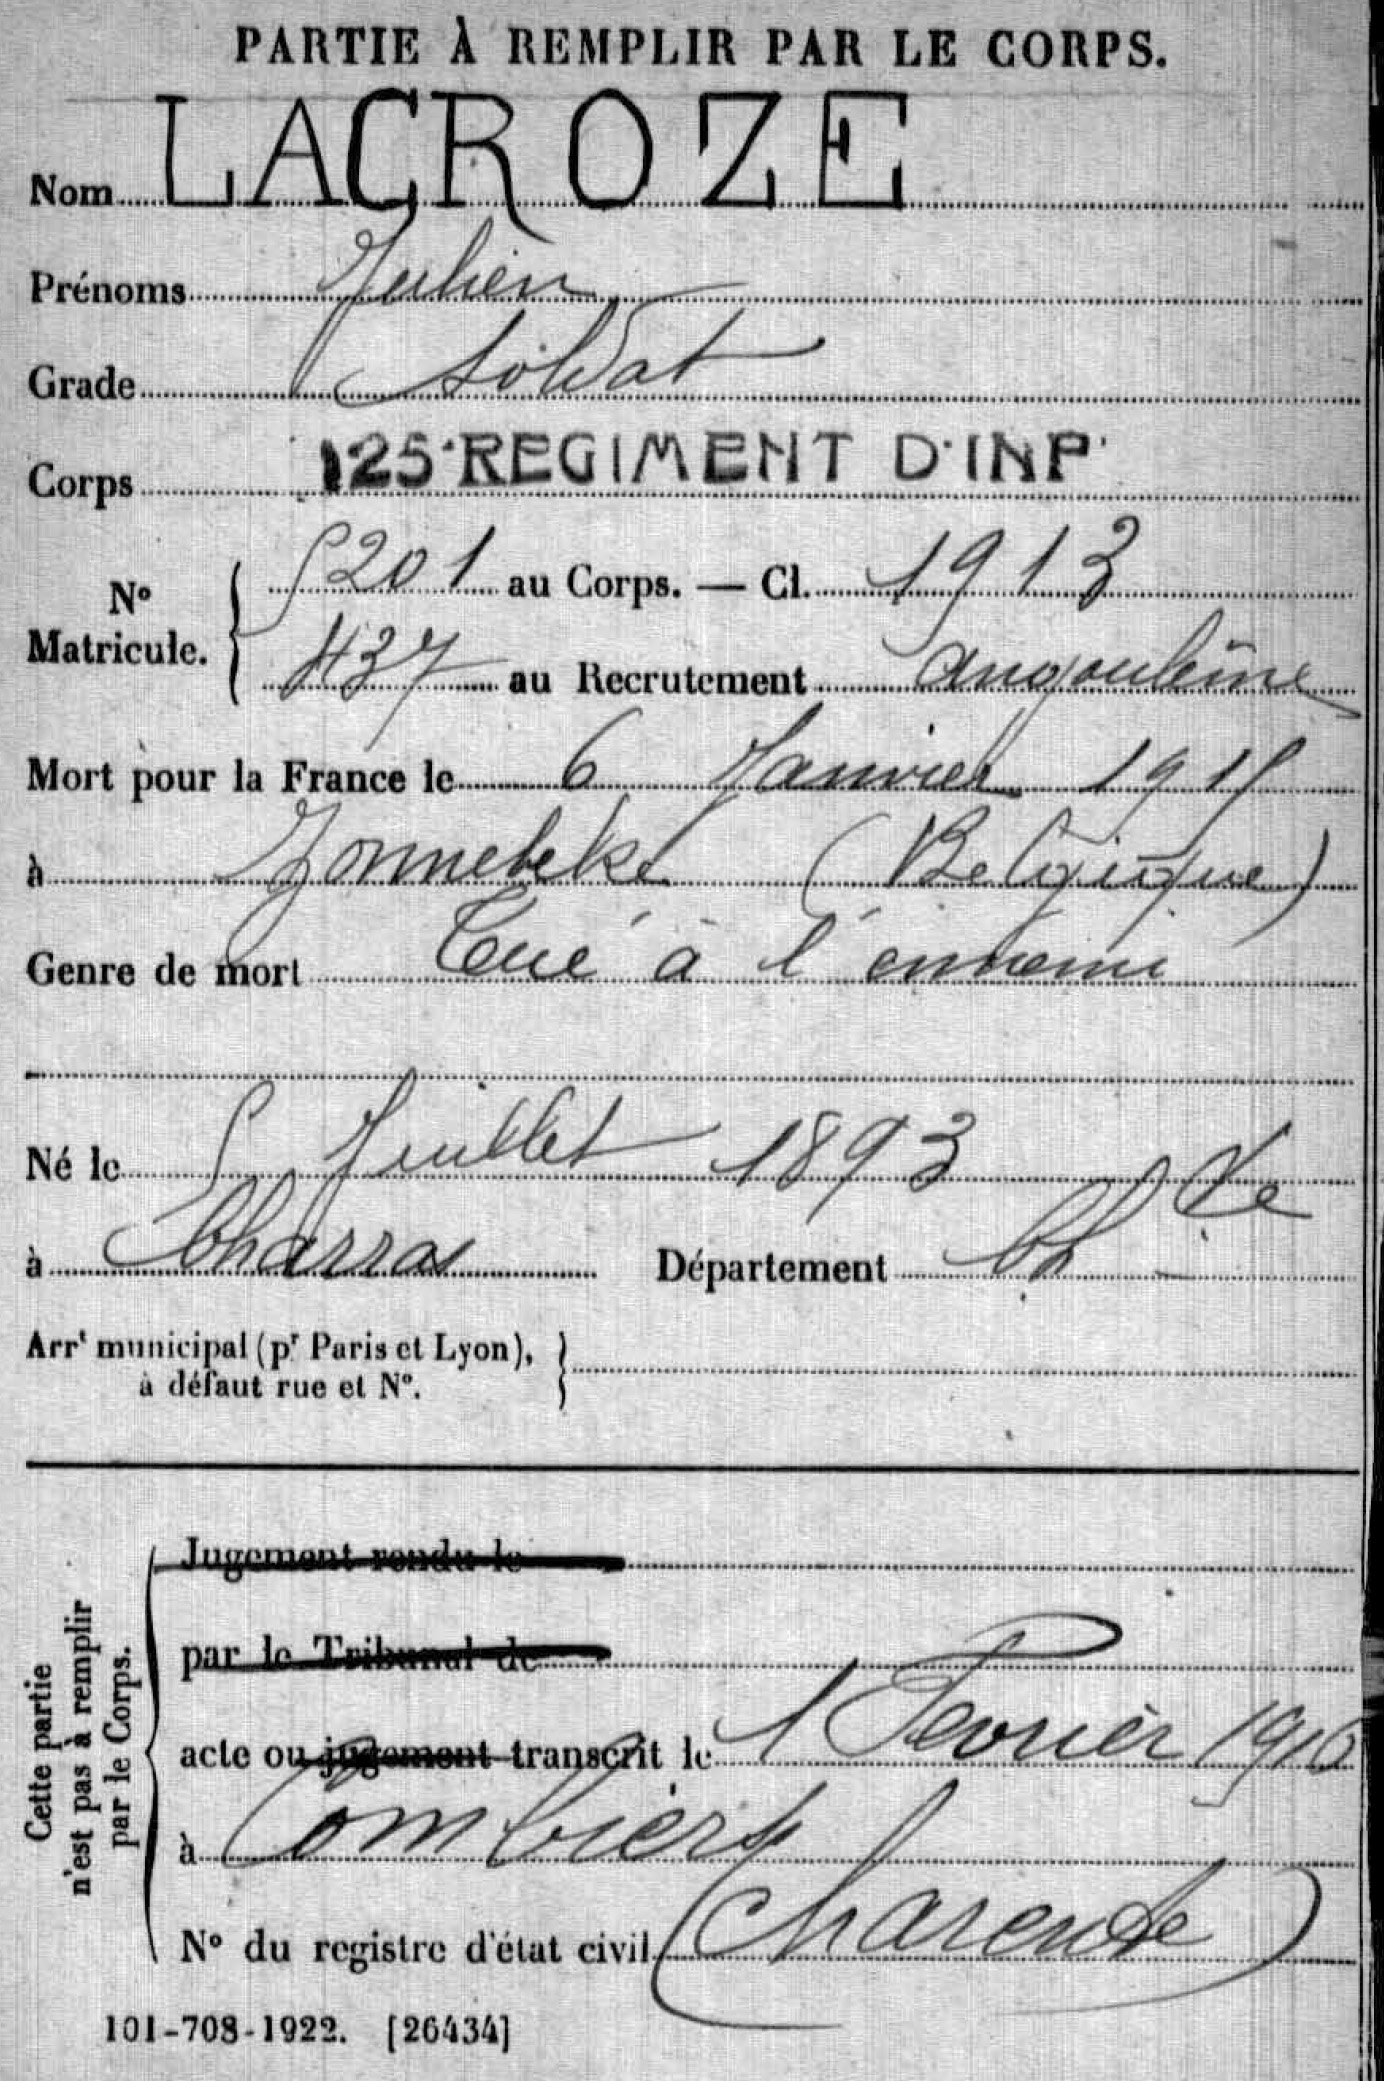 PARTIE À REMPLIR PAR LE CORPS.
Nom LACROZE
Prénoms Julien
Grade Soldat
Corps 125e REGIMENT D'INF
No Matricule. 5201 au Corps. — Cl. 1913
437 au Recrutement Angoulême
Mort pour la France le 6 Janvier 1915
à Zonnebeke (Belgique)
Genre de mort Tué à l'ennemi
Né le 5 Juillet 1893
à Charras Département Chte
Arrt municipal (pr Paris et Lyon),
à défaut rue et No.
Cette partie
n'est pas à remplir
par le Corps.
Jugement rendu le
par le Tribunal de
acte ou jugement transcrit le 1 Fevrier 1916
à Combiers
No du registre d'état civil (Charente)
101-708-1922. [26434]